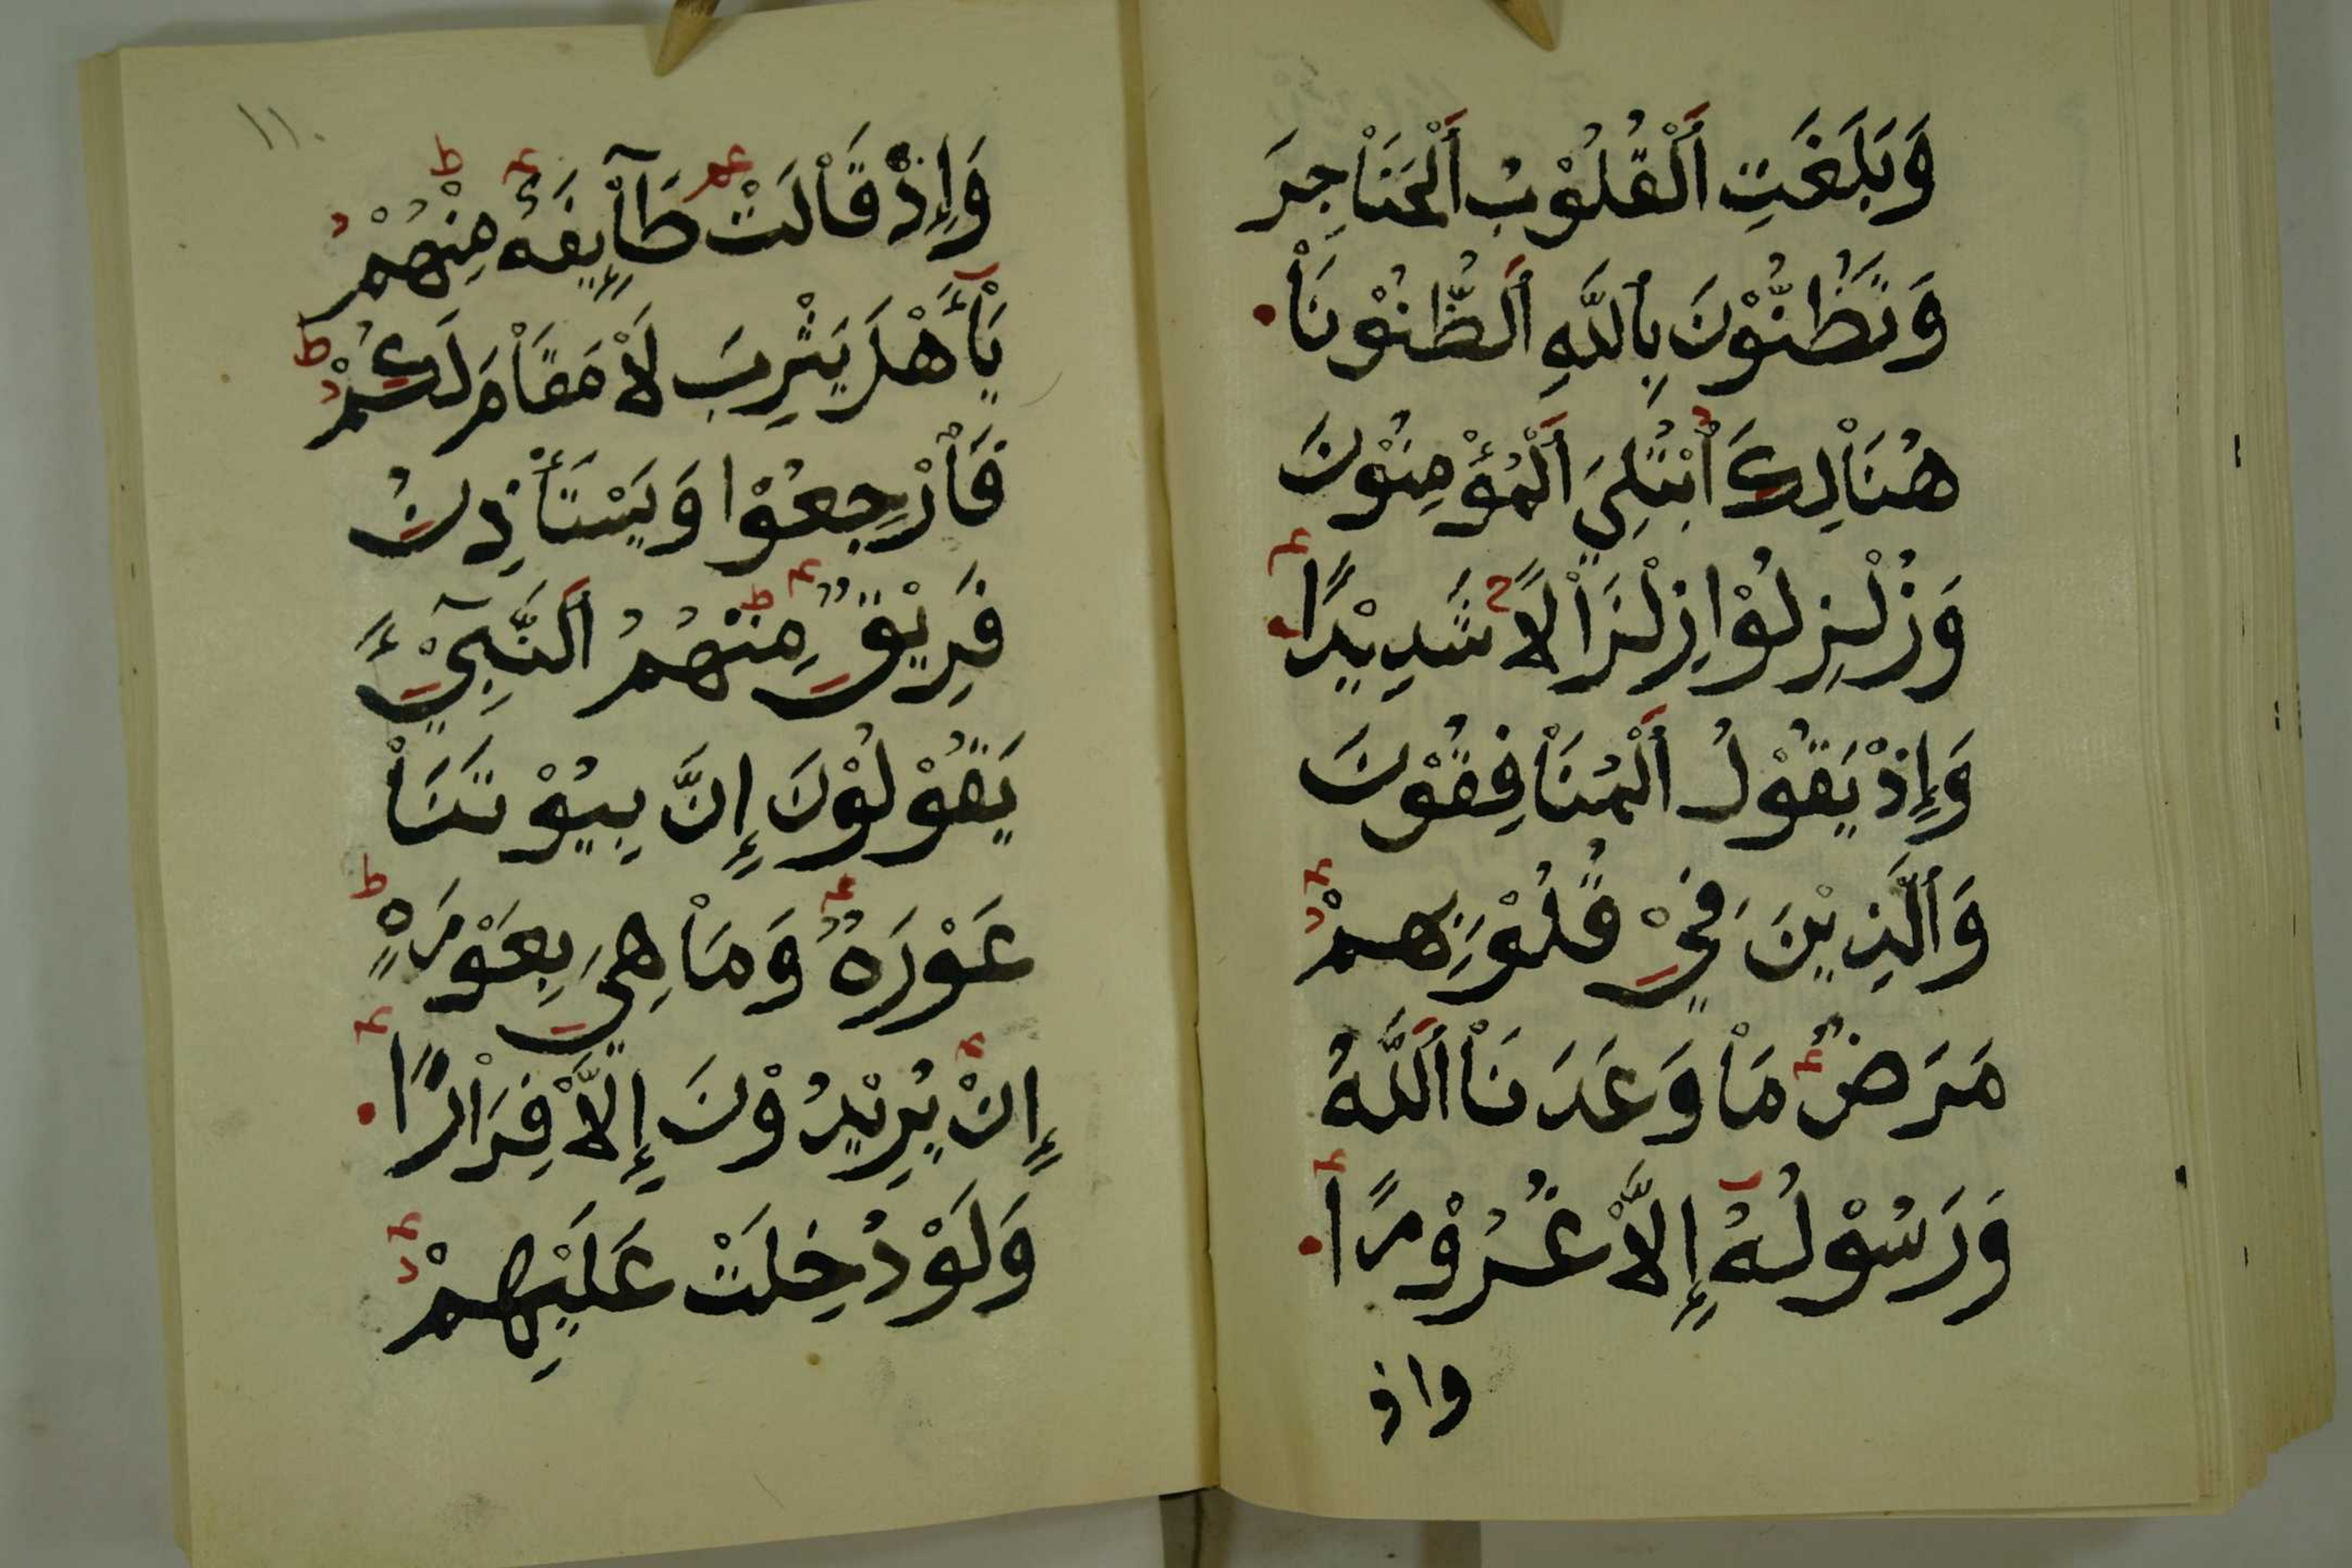 وَبَلَغَتِ اَلْقُلُوْبُ اَلْحَنَاْجِرَ
وَتَظُنُّوْنَ بِاللَّهِ اَلظُّنُوْنَاْ
هُنَاْلِكَ اُبْتُلِيَ اَلْمُؤْمِنُوْنَ
وَزُلْزِلُوْا زِلْزَاْلًا شَدِيْدًا
وَإِذْ يَقُوْلُ اَلْمُنَاْفِقُوْنَ
وَاَلَّذِيْنَ فِيْ قُلُوْبِهِمْ
مَرَضٌ مَاْ وَعَدَنَاْ اَللَّهُ
وَرَسُوْلُهُ إِلَّاْ غُرُوْرًا
واذ
١١٠
وَإِذْ قَاْلَتْ طَآئِفَةٌ مِنْهُمْ
يَاْأَهْلَ يَثْرِبَ لَاْ مَقَاْمَ لَكُمْ
فَاْرْجِعُوْا وَيَسْتَأْذِنُ
فَرِيْقٌ مِنْهُمُ اَلنَّبِيْٓءَ
يَقُوْلُوْنَ إِنَّ بِيُوْتَنَاْ
عَوْرَةٌ وَمَاْ هِيَ بِعَوْرَةٍ
إِنْ يُرِيْدُوْنَ إِلَّاْ فِرَاْرًا
وَلَوْ دُخِلَتْ عَلَيْهِمْ